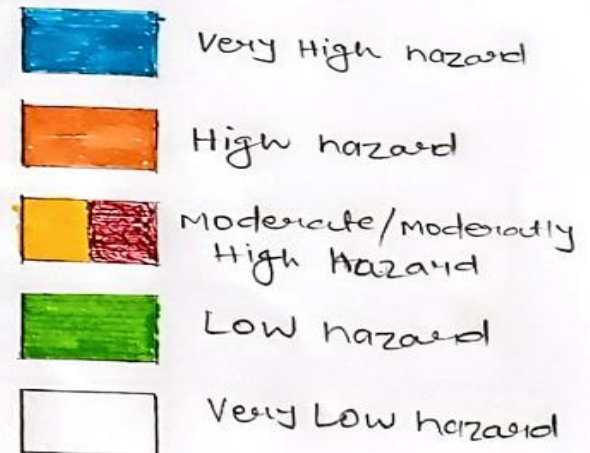 Very High hazard
High hazard
Moderate/Moderatly
High Hazard
Low hazard
Very Low hazard